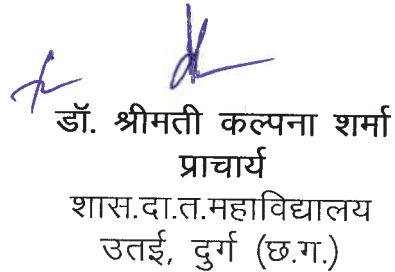 डॉ. श्रीमती कल्पना शर्मा
प्राचार्य
शास.दा.त.महाविद्यालय
उतई, दुर्ग (छ.ग.)